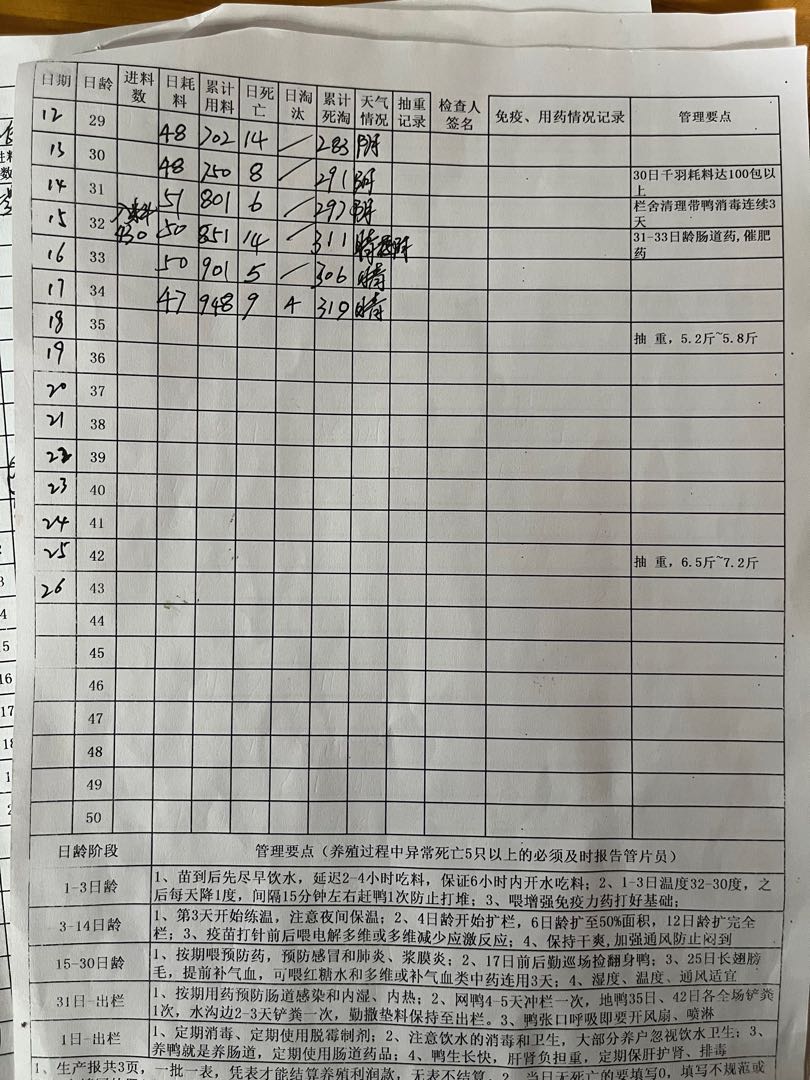 日期 日龄 进料数 日耗料 累计用料 日死亡 日淘汰 累计死淘 天气情况 抽重记录 检查人签名 免疫、用药情况记录 管理要点
12 29 48 702 14 / 283 阴
13 30 48 750 8 / 291 阴 30日千羽耗料达100包以上
14 31 51 801 6 / 297 阴 栏舍清理带鸭消毒连续3天
15 32 430 50 851 14 / 311 晴 31-33日龄肠道药,催肥药
16 33 50 901 5 / 306 晴
17 34 47 948 9 4 319 晴
18 35 抽 重，5.2斤~5.8斤
19 36
20 37
21 38
22 39
23 40
24 41
25 42 抽 重，6.5斤~7.2斤
26 43
44
45
46
47
48
49
50
日龄阶段 管理要点（养殖过程中异常死亡5只以上的必须及时报告管片员）
1-3日龄 1、苗到后先尽早饮水，延迟2-4小时吃料，保证6小时内开水吃料；2、1-3日温度32-30度，之
后每天降1度，间隔15分钟左右赶鸭1次防止打堆；3、喂增强免疫力药打好基础；
3-14日龄 1、第3天开始练温，注意夜间保温；2、4日龄开始扩栏，6日龄扩至50%面积，12日龄扩完全
栏；3、疫苗打针前后喂电解多维或多维减少应激反应；4、保持干爽,加强通风防止闷到
15-30日龄 1、按期喂预防药，预防感冒和肺炎、浆膜炎；2、17日前后勤巡场捡翻身鸭；3、25日长翅膀
毛，提前补气血，可喂红糖水和多维或补气血类中药连用3天；4、湿度、温度、通风适宜
31日-出栏 1、按期用药预防肠道感染和内湿、内热；2、网鸭4-5天冲栏一次，地鸭35日、42日各全场铲粪
1次，水沟边2-3天铲粪一次，勤撒垫料保持至出栏。3、鸭张口呼吸即要开风扇、喷淋
1日-出栏 1、定期消毒、定期使用脱霉制剂；2、注意饮水的消毒和卫生，大部分养户忽视饮水卫生；3、
养鸭就是养肠道，定期使用肠道药品；4、鸭生长快，肝肾负担重，定期保肝护肾、排毒
1、生产报共3页，一批一表，凭表才能结算养殖利润款，无表不结算。2、当日无死亡的要填写0，填写不规范或